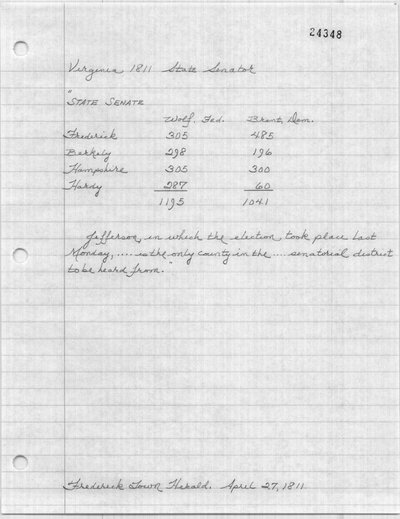 24348
Virginia 1811 State Senator
"
STATE SENATE
Wolf, Fed. Brent, Dem.
Frederick 305 485
Berkely 298 196
Hampshire 305 300
Hardy 287 60
1195 1041
Jefferson, in which the election took place last
Monday, .... is the only county in the .... senatorial district
to be heard from."
Frederick Town Herald. April 27, 1811.